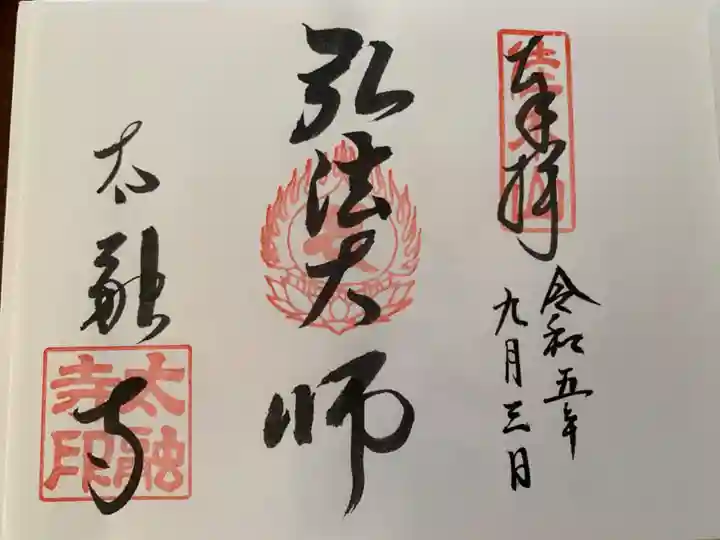 奉拝
令和五年
九月三日
弘法大師
太融寺
太融
寺印